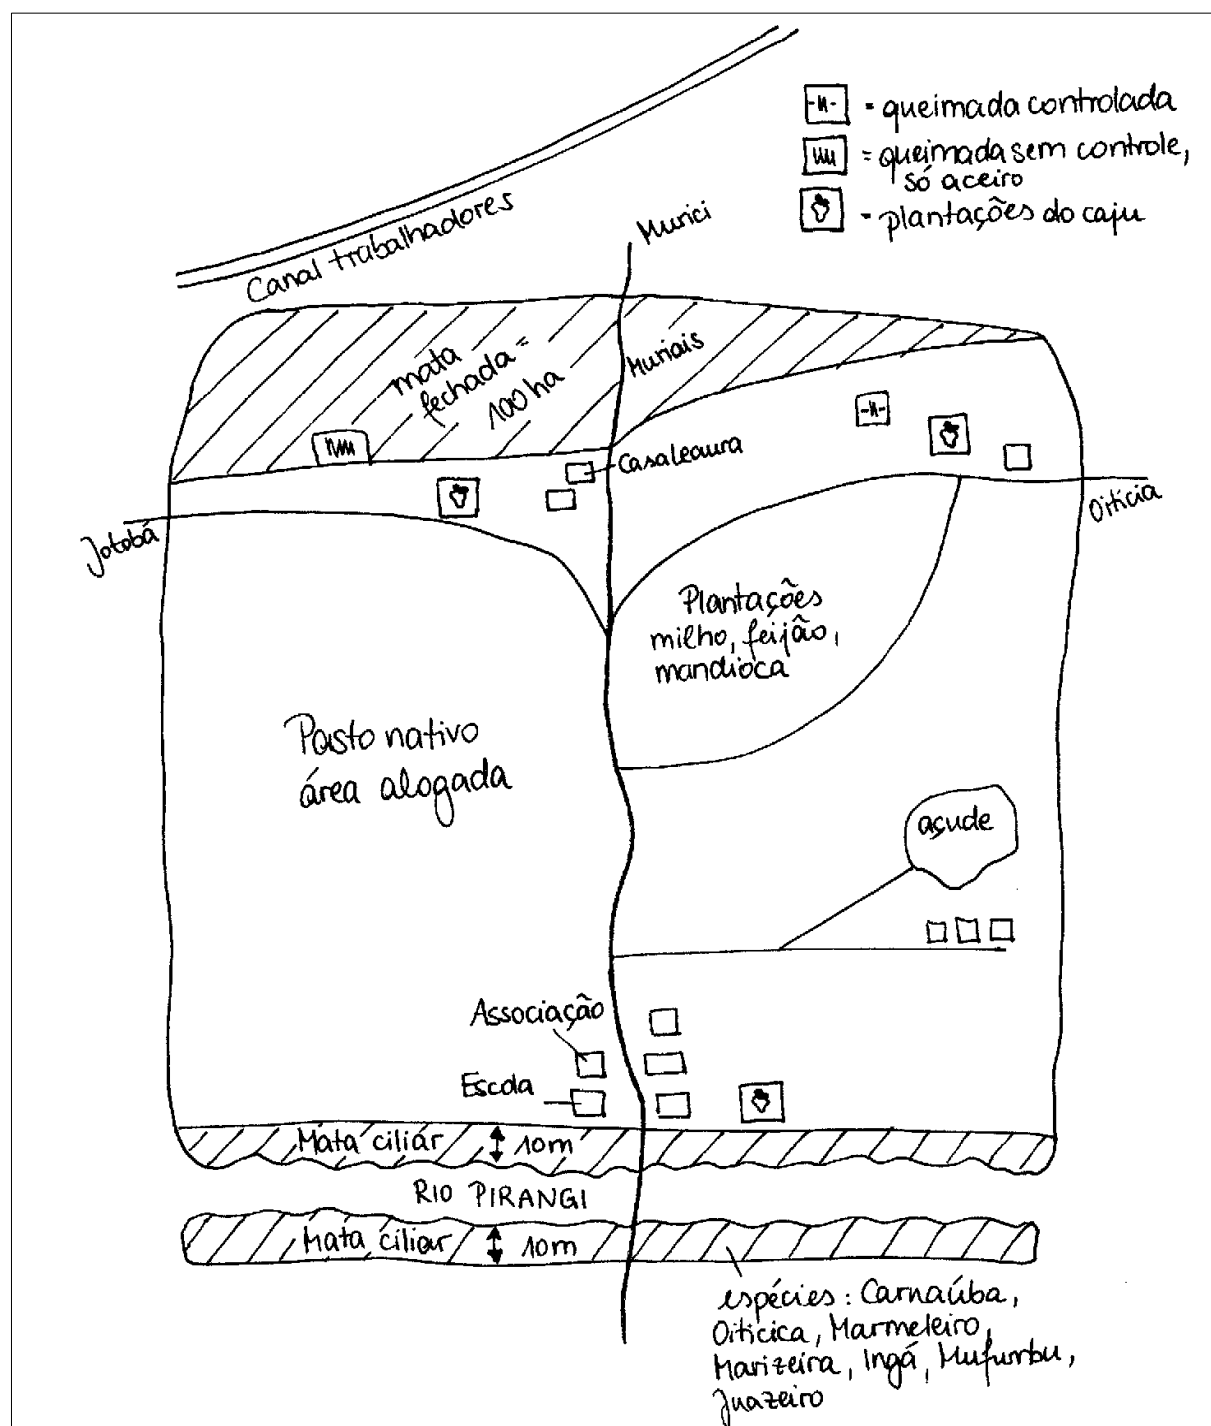 = queimada controlada
= queimada sem controle,
só aceiro
= plantações do caju
Canal trabalhadores
Murici
mata
fechada =
100 ha
Muriais
Casaleaura
Jotobá
Oiticia
Plantações
milho, feijão,
mandioca
Pasto nativo
área alogada
açude
Associação
Escola
Mata ciliár 10m
RIO PIRANGI
Mata ciliar 10m
espécies: Carnaúba,
Oiticica, Marmeleiro,
Marizeira, Ingá, Mufumbu,
Juazeiro